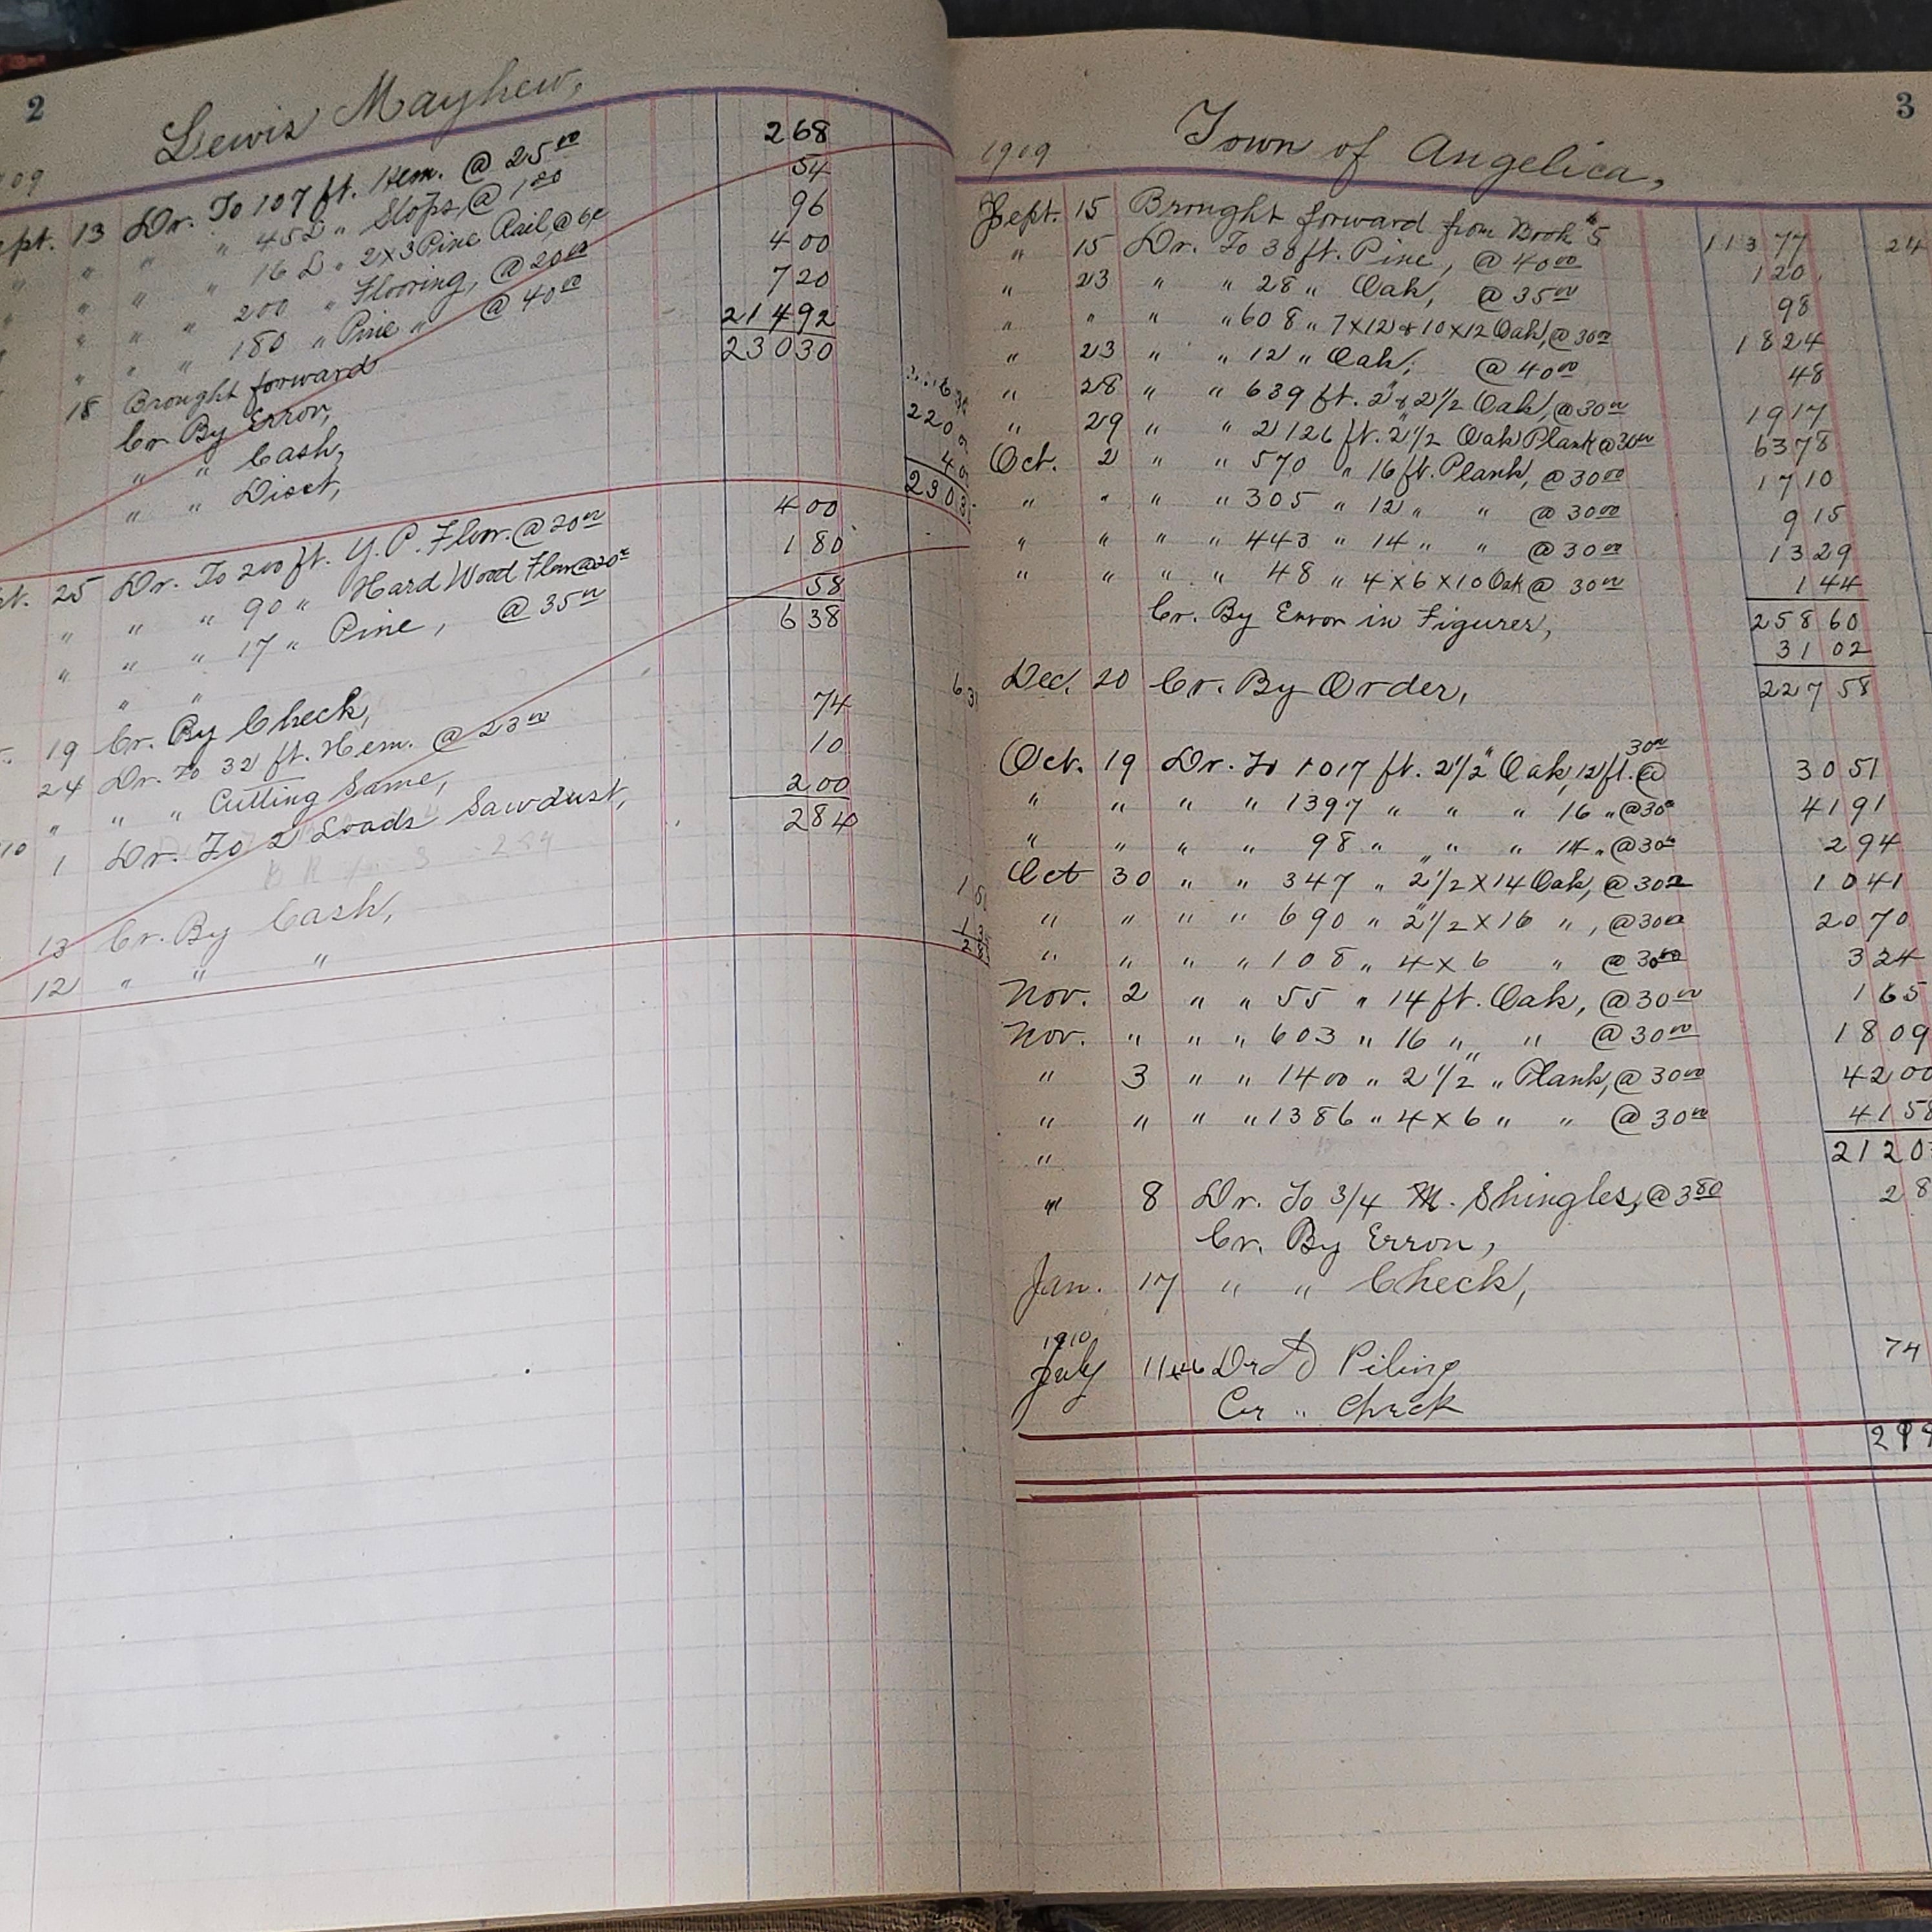 2
Lewis Mayhew,
09
ept. 13 Dr. To 107 ft. Hem. @ 25 00 268
" " " 45 L " Stops, @ 1 20 54
" " " 16 L " 2x3 Pine Rail, @ 6¢ 96
" " " 200 " Flooring, @ 20 00 400
" " " 180 " Pine " @ 40 00 720
18 Brought forward 21492
23030
Cr By Error,
" " Cash, 220
" " Disct, 4
2303
t. 25 Dr. To 200 ft. Y. P. Floor. @ 20 00 400
" " " 90 " Hard Wood Floor @ 20 00 180
" " " 17 " Pine, @ 35 00 58
" " 638
19 Cr. By Check, 63
24 Dr. To 32 ft. Hem. @ 23 00 74
" " " Cutting Same, 10
10 1 Dr. To 2 Loads Sawdust, 200
284
13 Cr. By Cash, 1
12 " " "
3
1909 Town of Angelica,
Sept. 15 Brought forward from Book #5 11377 24
" 15 Dr. To 30 ft. Pine, @ 40 00 120
" 23 " " 28 " Oak, @ 35 00 98
" " " " 608 " 7x12 & 10x12 Oak, @ 30 00 1824
" 23 " " 12 " Oak, @ 40 00 48
" 28 " " 639 ft. 2" & 2 1/2 Oak, @ 30 00 1917
" 29 " " 2126 ft. 2 1/2" Oak Plank @ 30 00 6378
Oct. 2 " " 570 " 16 ft. Plank, @ 30 00 1710
" " " " 305 " 12 " " @ 30 00 915
" " " " 443 " 14 " " @ 30 00 1329
" " " " 48 " 4x6x10 Oak @ 30 00 144
25860
Cr. By Error in Figures, 3102
22758
Dec. 20 Cr. By Order,
Oct. 19 Dr. To 1017 ft. 2 1/2" Oak, 12 ft. @ 30 00 3051
" " " " 1397 " " " 16 " @ 30 00 4191
" " " " 98 " " " 14 " @ 30 00 294
Oct 30 " " 347 " 2 1/2 x 14 Oak, @ 30 00 1041
" " " " 690 " 2 1/2 x 16 ", @ 30 00 2070
" " " " 108 " 4x6 " @ 30 00 324
Nov. 2 " " 55 " 14 ft. Oak, @ 30 00 165
Nov. " " " 603 " 16 " " @ 30 00 1809
" 3 " " 1400 " 2 1/2 " Plank, @ 30 00 4200
" " " " 1386 " 4x6 " " @ 30 00 4158
" 2120
" 8 Dr. To 3/4 M. Shingles, @ 3 80 28
Cr. By Error,
Jan. 17 " " Check,
1910
July Dr To Piling 74
Cr " Check